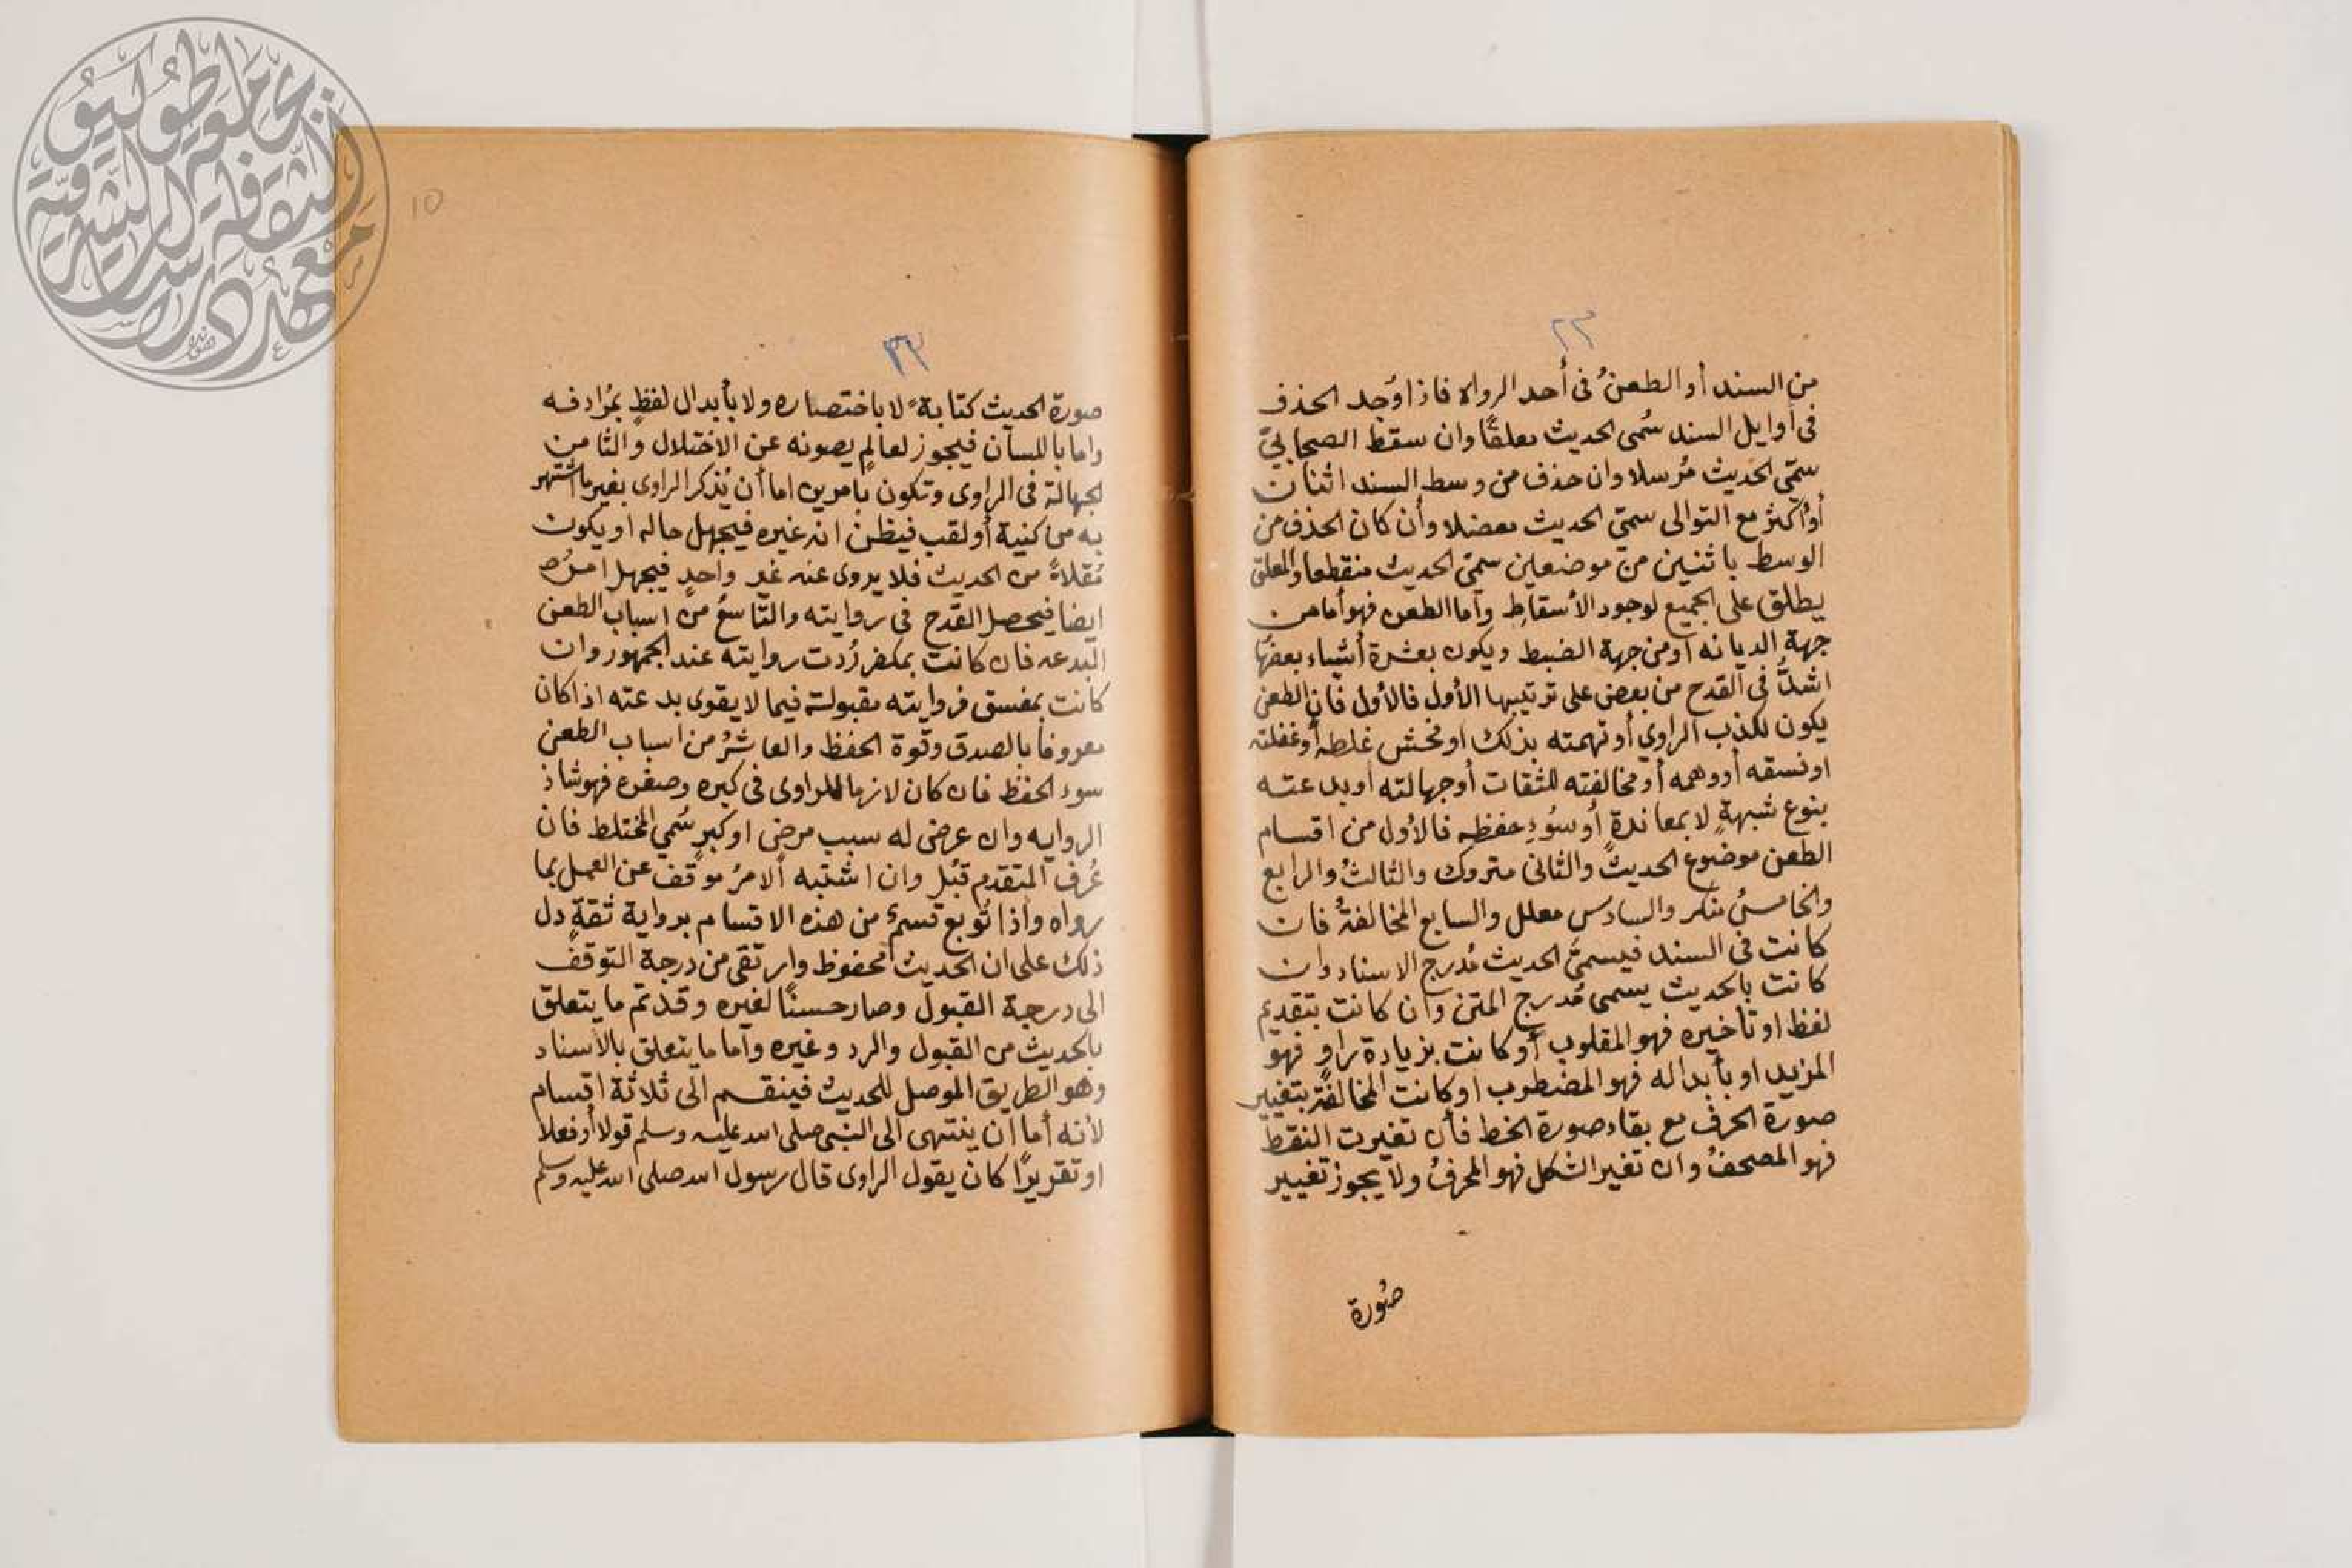 ٢٣
من السند أو الطعنُ فى أحد الرواه فاذا وُجد الحذف
فى أوايل السند سُمى الحديث معلقًا وان سقط الصحابىّ
سمّى الحديث مُرسلا وان حذف من وسط السند اثنان
أو أكثر مع التوالى سمىّ الحديث معضلا وأن كان الحذف من
الوسط باثنين من موضعين سمىّ الحديث منقطعا والمعلق
يطلق على الجميع لوجود الأسقاطِ وأما الطعن فهو أما من
جهة الديانه أو من جهة الضبط ويكون بعشرة أشياء بعضُها
اشدُّ فى القدح من بعض على ترتيبها الأول فالأول فان الطعن
يكون لكذب الراوي أو تهمته بذلك او فحش غلطه أو غفلته
او فسقه أو وهمه أو مخالفته للثقات أو جهالته أو بدعته
بنوع شبهةٍ لا بمعاندةٍ أو سُوءِ حفظه فالأول من اقسام
الطعن موضوع الحديث والثانى متروك والثالثُ والرابع
والخامسُ منكر والسادس معلل والسابع المخالفةُ فان
كانت فى السند فيسمىَّ الحديث مُدرج الاسناد وان
كانت بالحديث يسمى مُدرج المتن وان كانت بتقديم
لفظ او تأخيره فهو المقلوب أو كانت بزيادة راوٍ فهو
المزيد او بأبداله فهو المضطرب او كانت المخالفة بتغيير
صورة الحرف مع بقاء صورة الخط فأن تغيرت النقط
فهو المصحفُ وان تغير الشكل فهو المحرفُ ولا يجوز تغيير
صُورة
١٥
٣٣
صورة الحديث كتابةً لا باختصاره ولا بأبدال لفظٍ بمُرادفه
واما باللسان فيجوز لعالمٍ يصونه عن الاختلال والثامن
الجهالة فى الراوى وتكون بامرين اما أن يُذكر الراوى بغير ما اشتهر
به من كنية أو لقب فيظن انه غيره فيجهل حاله او يكون
مُقلاً من الحديث فلا يروى عنه غير واحدٍ فيجهل امرُه
ايضا فيحصل القدح فى روايته والتّاسعُ من اسباب الطعن
البدعه فان كانت بمكفر رُدت روايته عند الجمهور وان
كانت بمفسق فروايته مقبولة فيما لا يقوى بدعته اذا كان
معروفا بالصدق وقوة الحفظ والعاشرُ من اسباب الطعن
سوء الحفظ فان كان لازما للراوى فى كبره وصغره فهو شاذ
الروايه وان عرض له سبب مرض او كبرٍ سُمي المختلط فان
عُرف المتقدم قُبل وان اشتبه ألامرُ موقف عن العمل بما
رواه واذا تُوبع قسمٌ من هذه الاقسام برواية ثقةٍ دل
ذلك على ان الحديث محفوظ وارتقى من درجة التوقف
الى درجة القبول وصار حسنًا لغيره وقد تم ما يتعلق
بالحديث من القبول والرد وغيره وأما ما يتعلق بالأسناد
وهو الطريق الموصل للحديث فينقسم الى ثلاثة اقسام
لأنه أما ان ينتهى الى النبى صلى الله عليه وسلم قولا أو فعلا
او تقريرًا كان يقول الراوى قال رسول الله صلى الله عليه وسلم